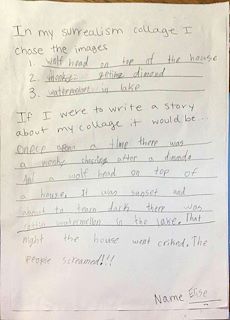 In my surrealism collage I
chose the images
1. wolf head on top of the house
2. getting dimond
3. watermelon in lake
If I were to write a story
about my collage it would be...
a time there was
a chasing after a
And a wolf head on top of
a house. It was sunset and
about to turn dark there was
watermelon in the lake. That
night the house went The
people screamed!!!
Name Elise